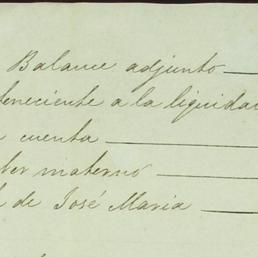 Balance adjunto
teneciente a la liquidac
cuenta
ber materno
de José Maria